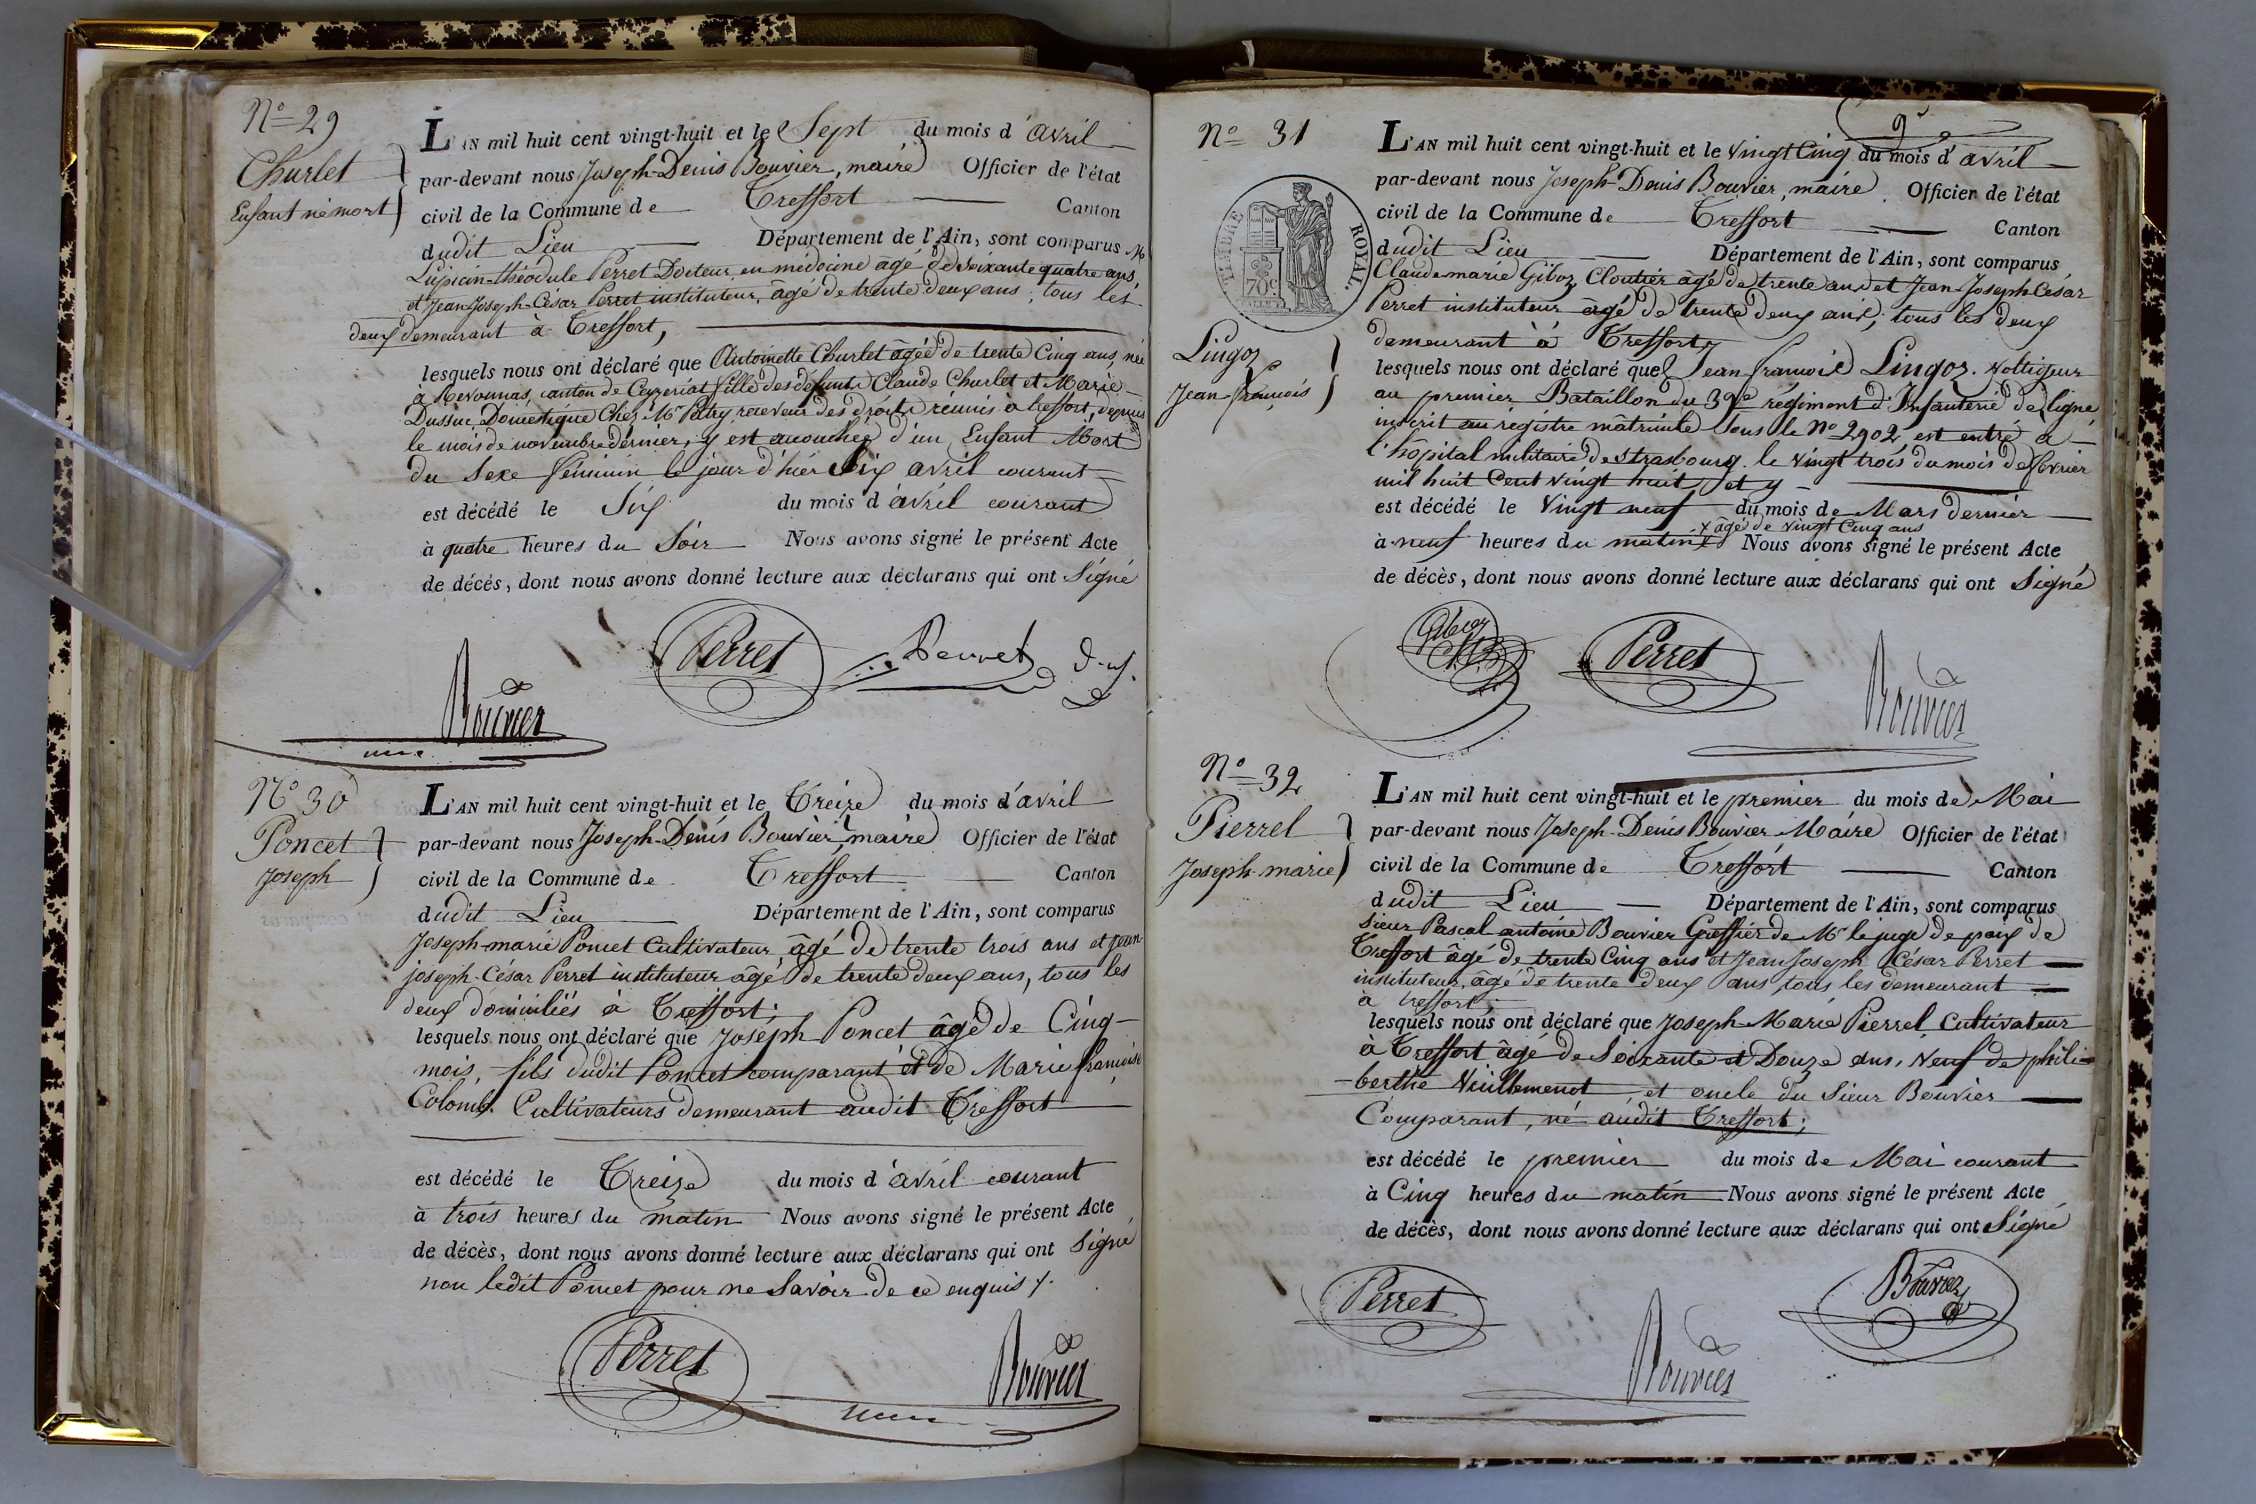 N° 29
Churlet
Enfant né mort
L'AN mil huit cent vingt-huit et le Sept du mois d'avril
par-devant nous Joseph-Denis Bouvier, maire Officier de l'état
civil de la Commune de Treffort Canton
dudit Lieu Département de l'Ain, sont comparus M
Lupicin-théodule Perret Docteur en médecine agé de soixante quatre ans,
et Jean-Joseph-César Perret instituteur, âgé de trente deux ans, tous les
deux demeurant à Treffort,
lesquels nous ont déclaré que Antoinette Churlet âgée de trente Cinq ans, née
à Revonnas, canton de Ceyzeriat fille des défunts Claude Churlet et Marie
Dussuc, Domestique Chez Mr Patry, receveur des droits réunis à treffort, depuis
le mois de novembre dernier, y est accouchée d'un Enfant Mort
du Sexe féminin le jour d'hier Six avril courant
est décédé le Six du mois d'avril courant
à quatre heures du Soir Nous avons signé le présent Acte
de décès, dont nous avons donné lecture aux déclarans qui ont Signé
Perret Perret
Bouvier
N° 30
Poncet
Joseph
L'AN mil huit cent vingt-huit et le Treize du mois d'avril
par-devant nous Joseph-Denis Bouvier, maire Officier de l'état
civil de la Commune de Treffort Canton
dudit Lieu Département de l'Ain, sont comparus
Joseph-marie Poncet Cultivateur, âgé de trente trois ans et jean
joseph-César Perret instituteur âgé de trente deux ans, tous les
deux domiciliés à Treffort;
lesquels nous ont déclaré que Joseph Poncet âgé de Cinq
mois, fils dudit Poncet comparant et de Marie françoise
Colomb. Cultivateurs demeurant audit Treffort
est décédé le Treize du mois d'avril courant
à trois heures du matin Nous avons signé le présent Acte
de décès, dont nous avons donné lecture aux déclarans qui ont Signé
non ledit Poncet pour ne Savoir de ce enquis
Perret Bouvier
9
N° 31
TIMBRE ROYAL
70c
Lingoz
Jean-françois
L'AN mil huit cent vingt-huit et le vingt Cinq du mois d'avril
par-devant nous Joseph-Denis Bouvier, maire Officier de l'état
civil de la Commune de Treffort Canton
dudit Lieu Département de l'Ain, sont comparus
Claude marie Giboz, Cloutier âgé de trente ans et Jean-Joseph César
Perret instituteur âgé de trente deux ans, tous les deux
demeurant à Treffort,
lesquels nous ont déclaré que Jean françois Lingoz. Voltigeur
au premier Bataillon du 39e régiment d'Infanterie de ligne
inscrit au régistre matricule sous le N° 2902, est entré à
l'hôpital militaire de strasbourg le vingt trois du mois de fevrier
mil huit Cent vingt huit, et y
est décédé le vingt neuf du mois de Mars dernier
âgé de vingt Cinq ans
à neuf heures du matin Nous avons signé le présent Acte
de décès, dont nous avons donné lecture aux déclarans qui ont Signé
Giboz Perret
Bouvier
N° 32
Pierrel
Joseph-marie
L'AN mil huit cent vingt-huit et le premier du mois de Mai
par-devant nous Joseph-Denis Bouvier Maire Officier de l'état
civil de la Commune de Treffort Canton
dudit Lieu Département de l'Ain, sont comparus
Sieur Pascal antoine Bouvier Greffier de Mr le juge de paix de
Treffort âgé de trente Cinq ans et Jean Joseph César Perret
instituteur, âgé de trente deux ans, tous les demeurant
à treffort;
lesquels nous ont déclaré que Joseph-Marie Pierrel Cultivateur
à Treffort âgé de Soixante et Douze ans, Veuf de phili-
-berthe Vuillemenot et oncle du Sieur Bouvier
Comparant, né audit Treffort;
est décédé le premier du mois de Mai courant
à Cinq heures du matin Nous avons signé le présent Acte
de décès, dont nous avons donné lecture aux déclarans qui ont Signé
Perret Bouvier
Bouvier